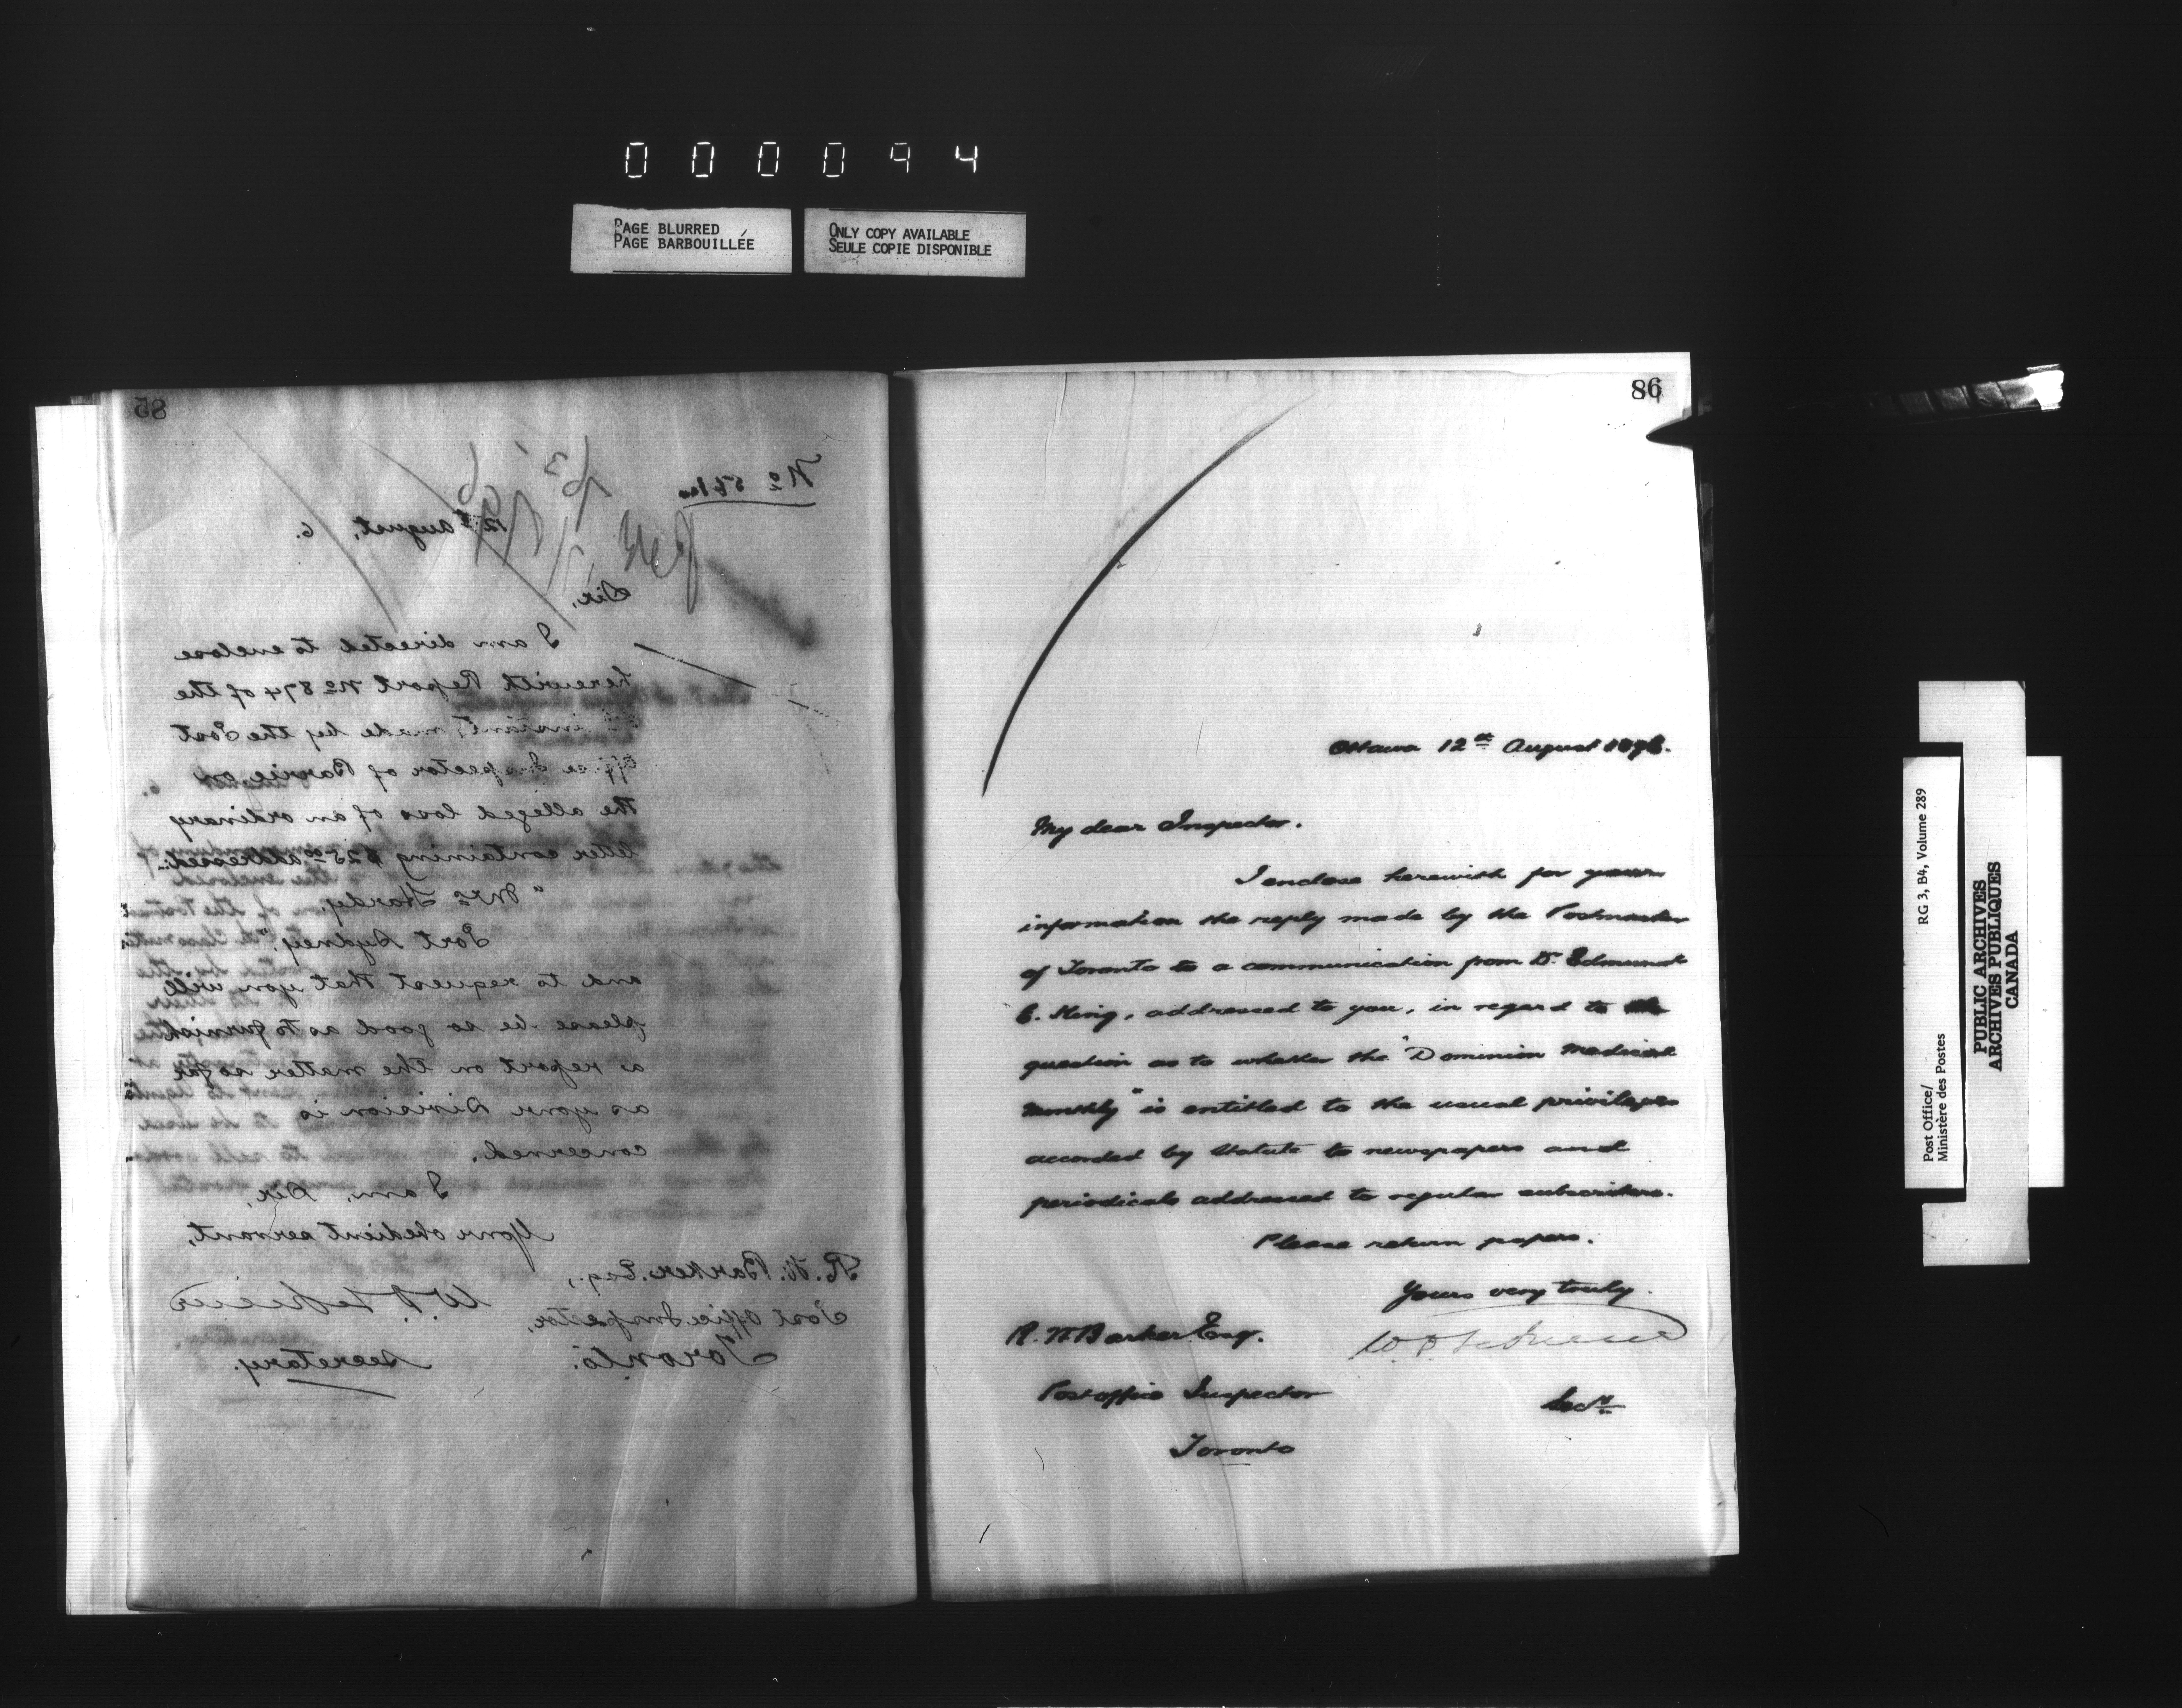 000094
PAGE BLURRED
PAGE BARBOUILLÉE
ONLY COPY AVAILABLE
SEULE COPIE DISPONIBLE
85
No
12th August, 6.
Sir,
I am directed to enclose
herewith Report No 874 of the
instant, made by the Post
Office Inspector of Barrie, on
the alleged loss of an ordinary
letter containing $25 addressed:-
"Mrs Hardy,
Port Sydney,"
and to request that you will
please be so good as to furnish
a report on the matter so far
as your Division is
concerned.
I am, Sir,
Your obedient servant,
R. W. Barker, Esq.,
Post Office Inspector,
Toronto.
Secretary.
86
Ottawa 12th August 1896.
My dear Inspector.
I enclose herewith for your
information the reply made by the Postmaster
of Toronto to a communication from Dr. Edmund
E. King, addressed to you, in regard to the
question as to whether the "Dominion Medical
Monthly" is entitled to the usual privileges
accorded by Statute to newspapers and
periodicals addressed to regular subscribers.
Please return papers.
Yours very truly.
R. W Barker Esq.
Post office Inspector
Toronto
Secy
Post Office/
Ministère des Postes
RG 3, B4, Volume 289
PUBLIC ARCHIVES
ARCHIVES PUBLIQUES
CANADA